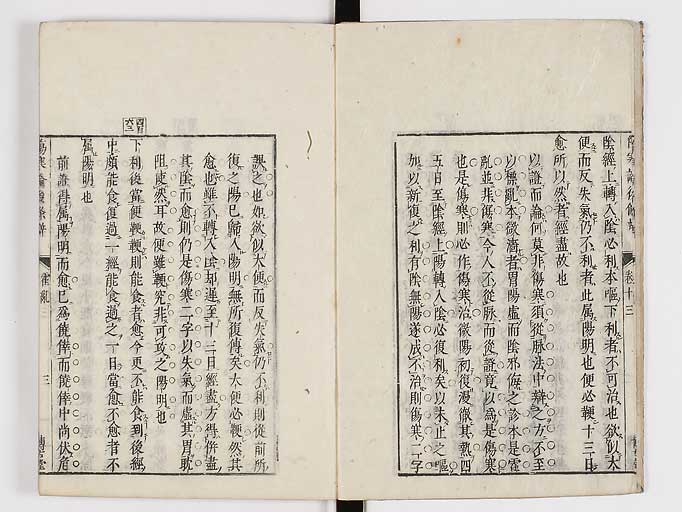 陰經上轉入陰必利本嘔下利者不可治也欲似大
便而反失氣仍不利者此属陽明也便必鞕十三日
愈所以然者經盡故也
以證而論何莫非傷寒須從脉法中辯之方不至
以霍亂本
亂並非傷寒今人不從脉而從證竟以為是傷寒
也是傷寒則必作傷寒治微陽初復漫徹其熱四
五日至陰經上陽轉入陰必復利矣以未止之嘔
加以新復之利有陰無陽遂成不治則傷寒二字
誤之也如欲似大便而反失氣仍不利則從前所
復之陽已歸入陽明無所復傳矣大便必鞕然其
愈也雖不轉入陰却遲至十三日經盡方得併盡
其陰而愈則仍是傷寒二字以失氣而虛其胃耽
阻使然耳故便雖鞕究非可攻之陽明也
下利後當便鞕鞕則能食者愈今更不能食到後經
中頗能食復過一經能食過之一日當愈不愈者不
属陽明也
前證得属陽明而愈已為僥倖而僥倖中尚伏有
卷十三
霍亂
三